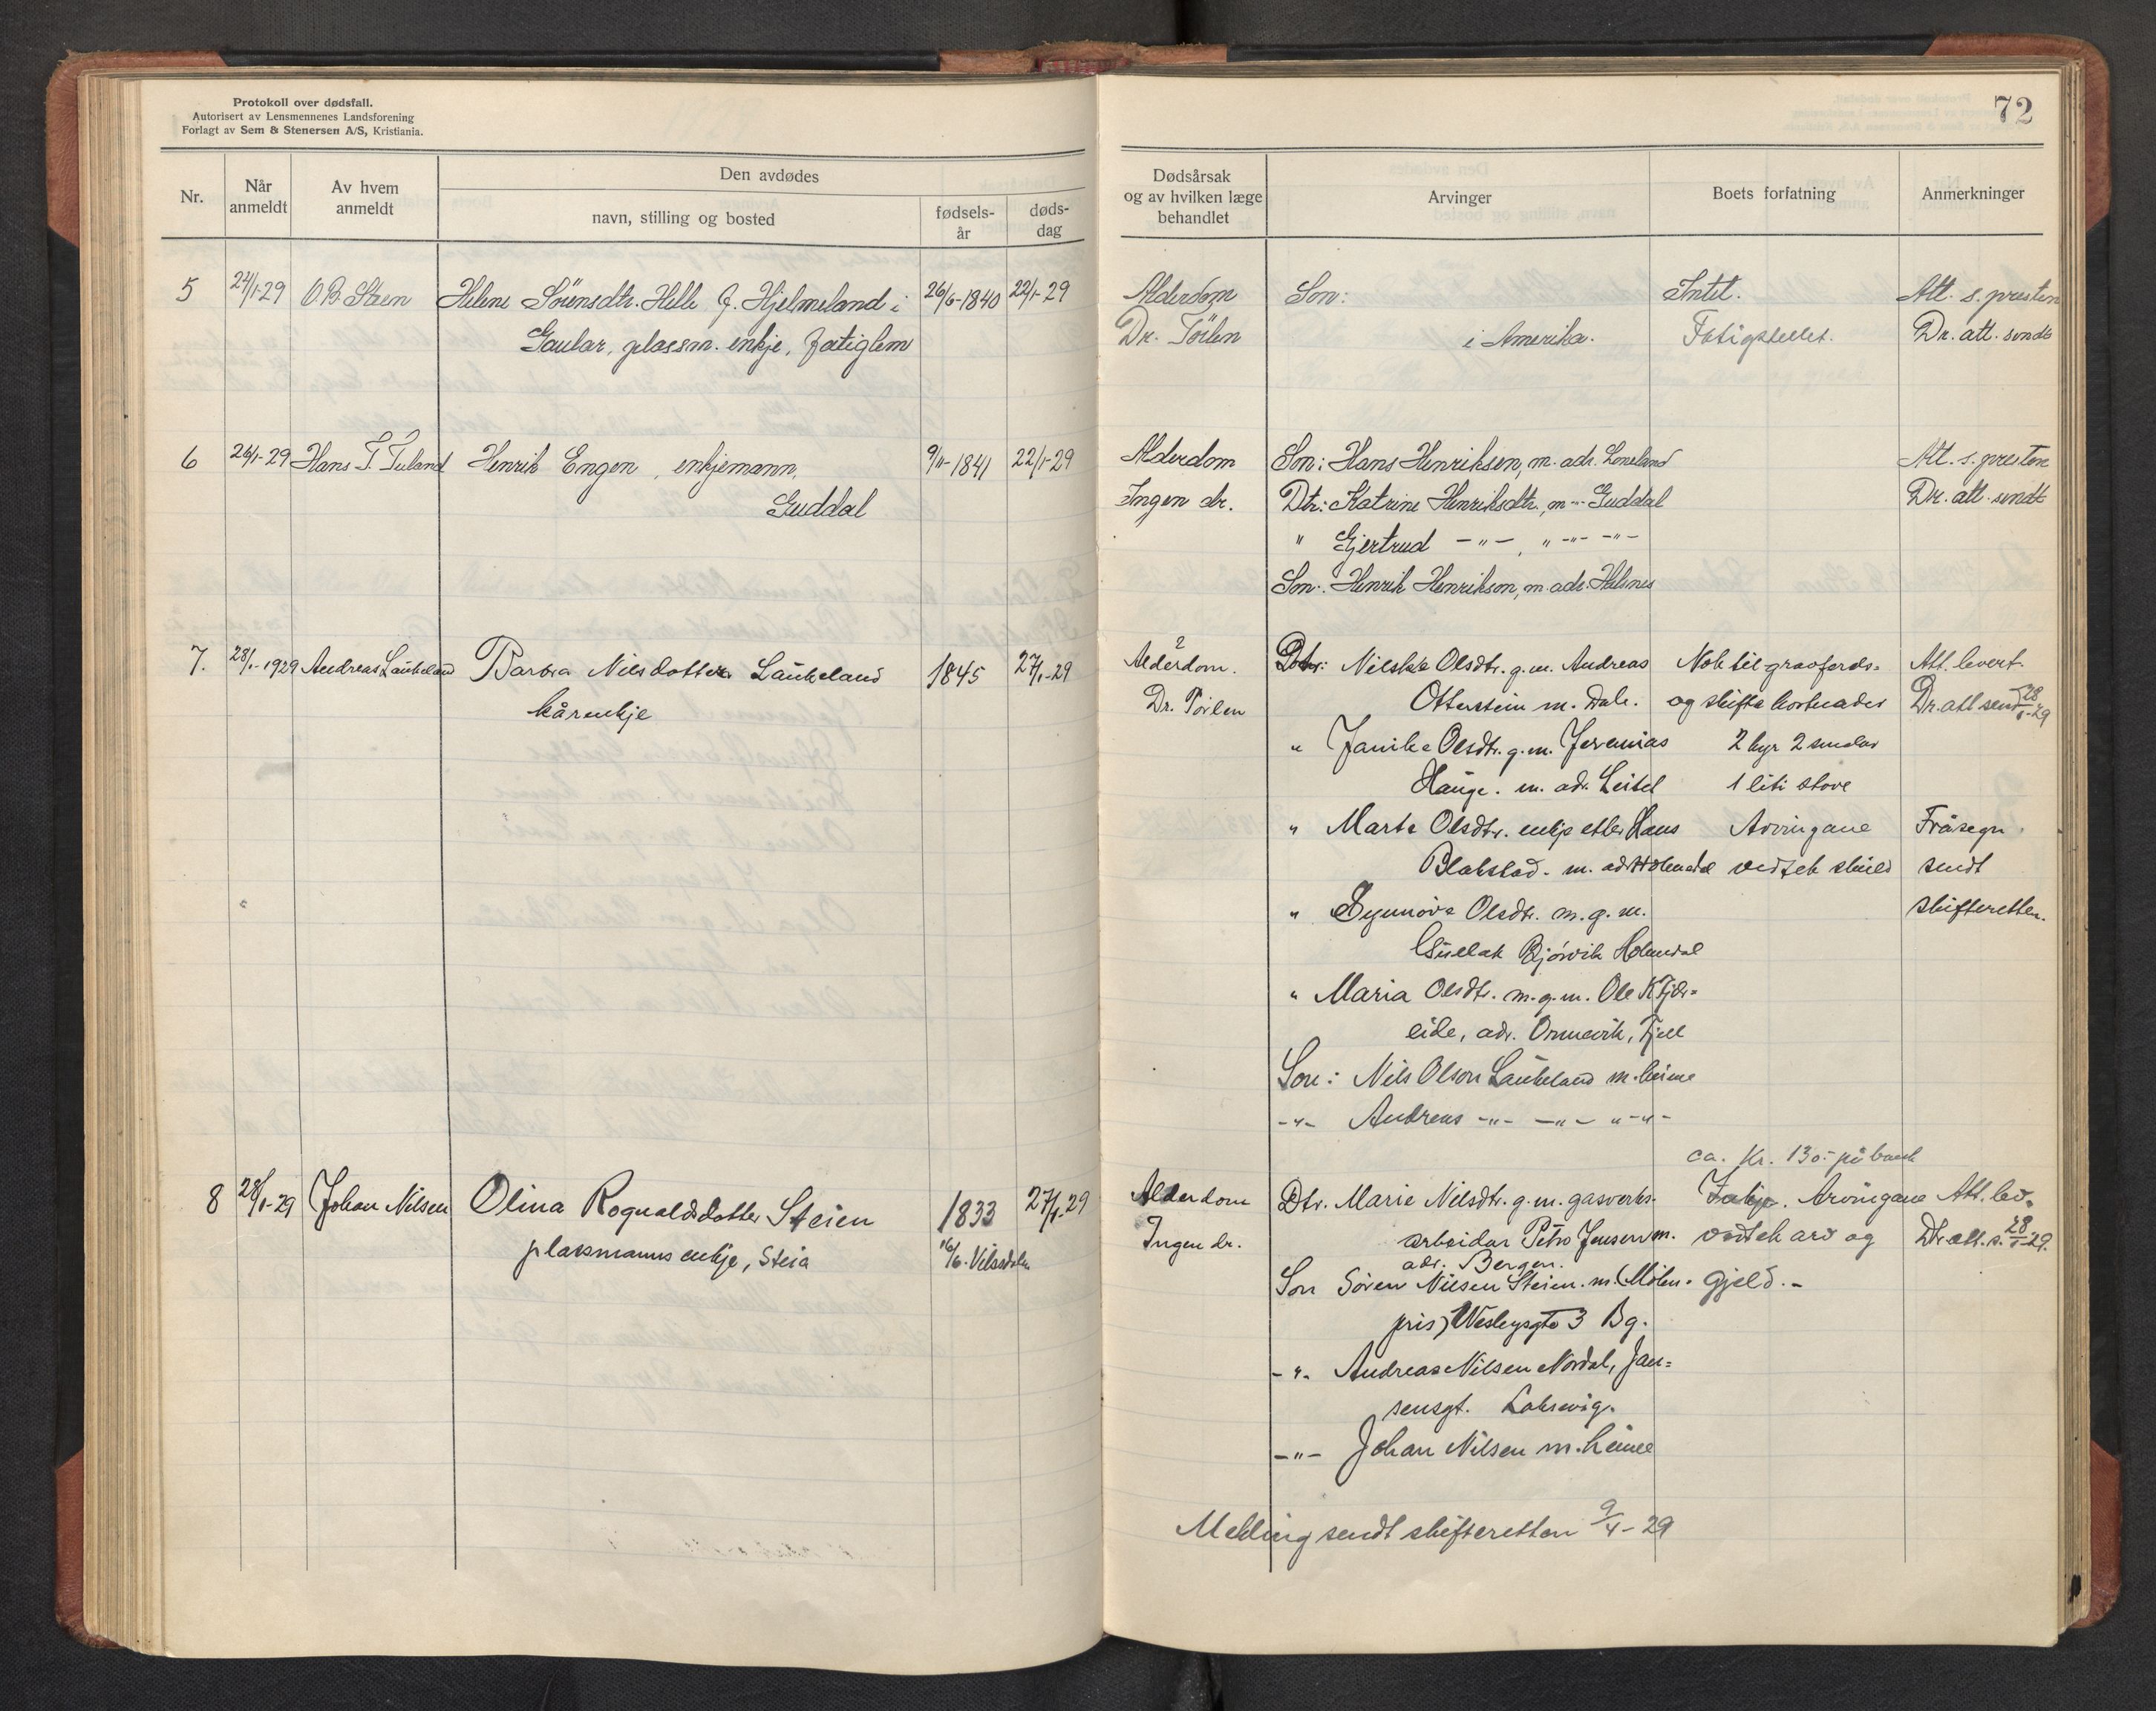 Protokoll over dødsfall.
Autorisert av Lensmennenes Landsforening
Forlagt av Sem & Stenersen A/S, Kristiania.
Nr.
Når anmeldt
Av hvem anmeldt
Den avdødes
navn, stilling og bosted
fødsels-år
døds-dag
5 24/1-29 O.B. Steen Helene Sörensdtr. Helle f. Hjelmeland i 26/6-1840 22/1-29
Gaular, plassm. enkje, fatiglem
6 26/1-29 Hans T. Tuland Henrik Engen, enkjemann, 9/11-1841 22/1-29
Guddal
7. 28/1-1929 Andreas Laukeland Barbra Nilsdotter Laukeland 1845 27/1-29
kårenkje
8 28/1-29 Johan Nilsen Olina Rognaldsdotter Steien 1833 27/1-29
plassmanns enkje, Steia 16/6. Vilnesdalen
72
Dødsårsak
og av hvilken læge
behandlet
Arvinger
Boets forfatning
Anmerkninger
Alderdom Son: Intet. Att. s. presten
Dr. Töilen i Amerika. Fatigstellet. Dr. att. sendt
Alderdom Son: Hans Henriksen, m. adr. Loneland Att. s. presten
Ingen dr. Dtr: Katrine Henriksdtr., m -"- Guddal Dr. att. sendt
" Gjertrud -"-, " -"- -"-
Son: Henrik Henrikson, m. adr. Hellenes
2
Alderdom. Dotr: Nilska Olsdtr. g.m. Andreas Nok til gravferds- Att. levert.
Dr. Töilen Otterstein m. Dale. og skifte kostnader Dr. att send 28/1-29
" Janika Olsdtr. g.m. Jeremias 2 kyr 2 smalar
Hauge. m. adr. Leitel 1 liti stove
" Marta Olsdtr. enkje etter Hans Arvingane Fråsegn
Blakstad. m. adr Holmedal vedtek skuld sendt
" Synnöva Olsdtr. m.g.m. skifteretten.
Gullak Bjórvik Holmedal
" Maria Olsdtr. m.g.m. Ole K Fjær-
eide, adr. Ormevik, Fjell
Son: Nils Olson Laukeland m. heime
-"- Andreas -"- -"- " -"-
ca. Kr. 130.- på bank
Alderdom Dtr. Marie Nilsdtr. g.m. gasverks- Inkje. Arvingane Att. lev.
Ingen dr. arbeidar Petro Jensen m. vedtek arv og Dr. att. s. 28/1-29.
adr. Bergen.
Son Sören Nilsen Steien. m. (Mölen- gjeld.-
pris) Wesleysgt 3 Bg.
-"- Andreas Nilsen Nordal, Jan-
sensgt. Laksevåg.
-"- Johan Nilsen m. heime
Melding sendt skifteretten 9/4-29